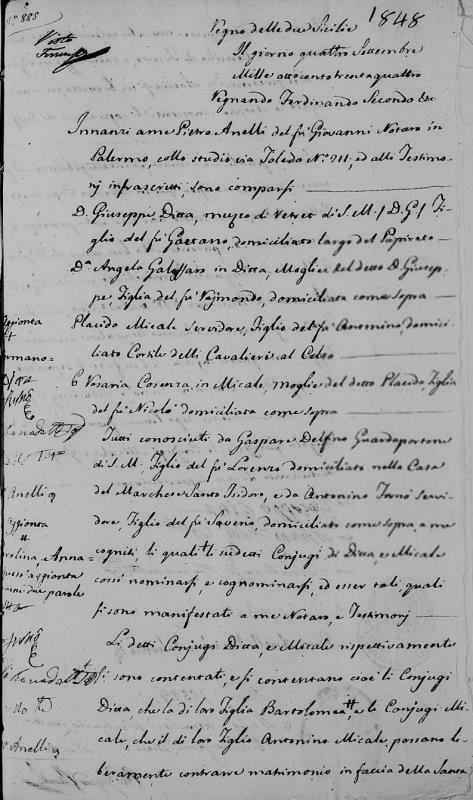 N.° 885
1848
Visto
Regno delle due Sicilie
Il giorno quattro Settembre
Mille ottocento trentaquattro
Regnando Ferdinando Secondo &c
Innanzi a me Pietro Anelli del fù Giovanni Notaro in
Palermo, collo studio via Toledo N.° 211, ed alli Testimo-
nj infrascritti, sono comparsi
D. Giuseppe Ditta, di S. M. / D. G. / Fi-
glio del fù Gaetano, domiciliato largo del Papireto
D.a Angela in Ditta, Moglie del detto D. Giusep-
pe, Figlia del fù Rajmondo, domiciliata come sopra
Placido Micale Servidore, Figlio del fù Antonino, domici-
liato Cortile delli Cavalieri al Celso
E Rosaria Cosenza in Micale, moglie del detto Placido Figlia
del fù Nicolò domiciliata come sopra
Tutti conosciuti da Gaspare Delfino Guardaportone
di S. M. Figlio del fù Lorenzo domiciliato nella Casa
del Marchese Santo Isidoro, e da Antonino servi-
dore, Figlio del fù Saverio, domiciliato come sopra, a me
cogniti, li quali li sudetti Conjugi di Ditta, e Micale
cossì nominarsi, e cognominarsi, ed esser tali, quali
si sono manifestati a me Notaro, e Testimonj
Li detti Conjugi Ditta, e Micale rispettivamente
si sono contentati, e si contentano cioè li Conjugi
Ditta, che la di loro Figlia Bartolomea #, e li Conjugi Mi-
cale, che il di loro Figlio Antonino Micale, possano li-
beramente contrarre matrimonio in faccia della Santa
Aggionta
Anelli
Aggionta
#
rolina, e Anna
aggionta
due parole
Anelli